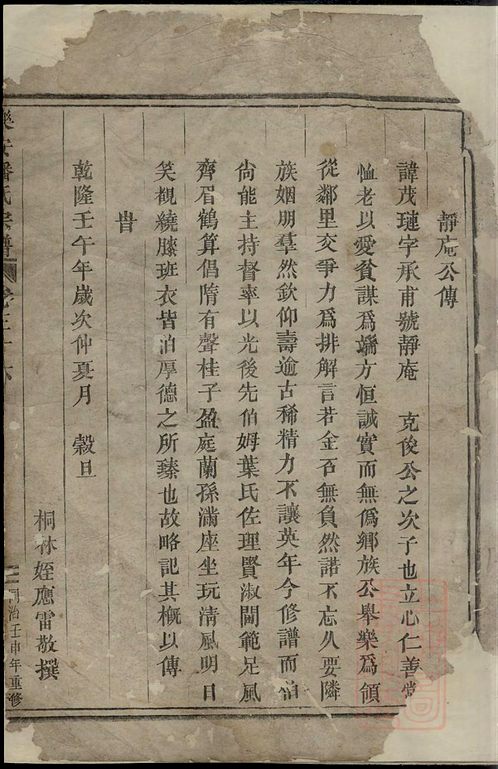 靜庵公傳
諱茂璉字承甫號靜庵 克俊公之次子也立心仁善常
恤老以愛貧謀爲端方恒誠實而無僞鄉族公舉樂爲領
從鄰里交爭力爲排解言若金石無負然諾不忘久要隣
族姻朋羣然欽仰壽逾古稀精力不讓英年今修譜而伯
尙能主持督率以光後先伯姆葉氏佐理賢淑閫範足風
齊眉鶴算倡隋有聲桂子盈庭蘭孫滿座坐玩清風明月
笑覩繞膝班衣皆泊厚德之所臻也故略記其槪以傳
旹
乾隆壬午年歲次仲夏月 穀旦
桐林姪應雷敬撰
潘氏宗譜
同治壬申年重修